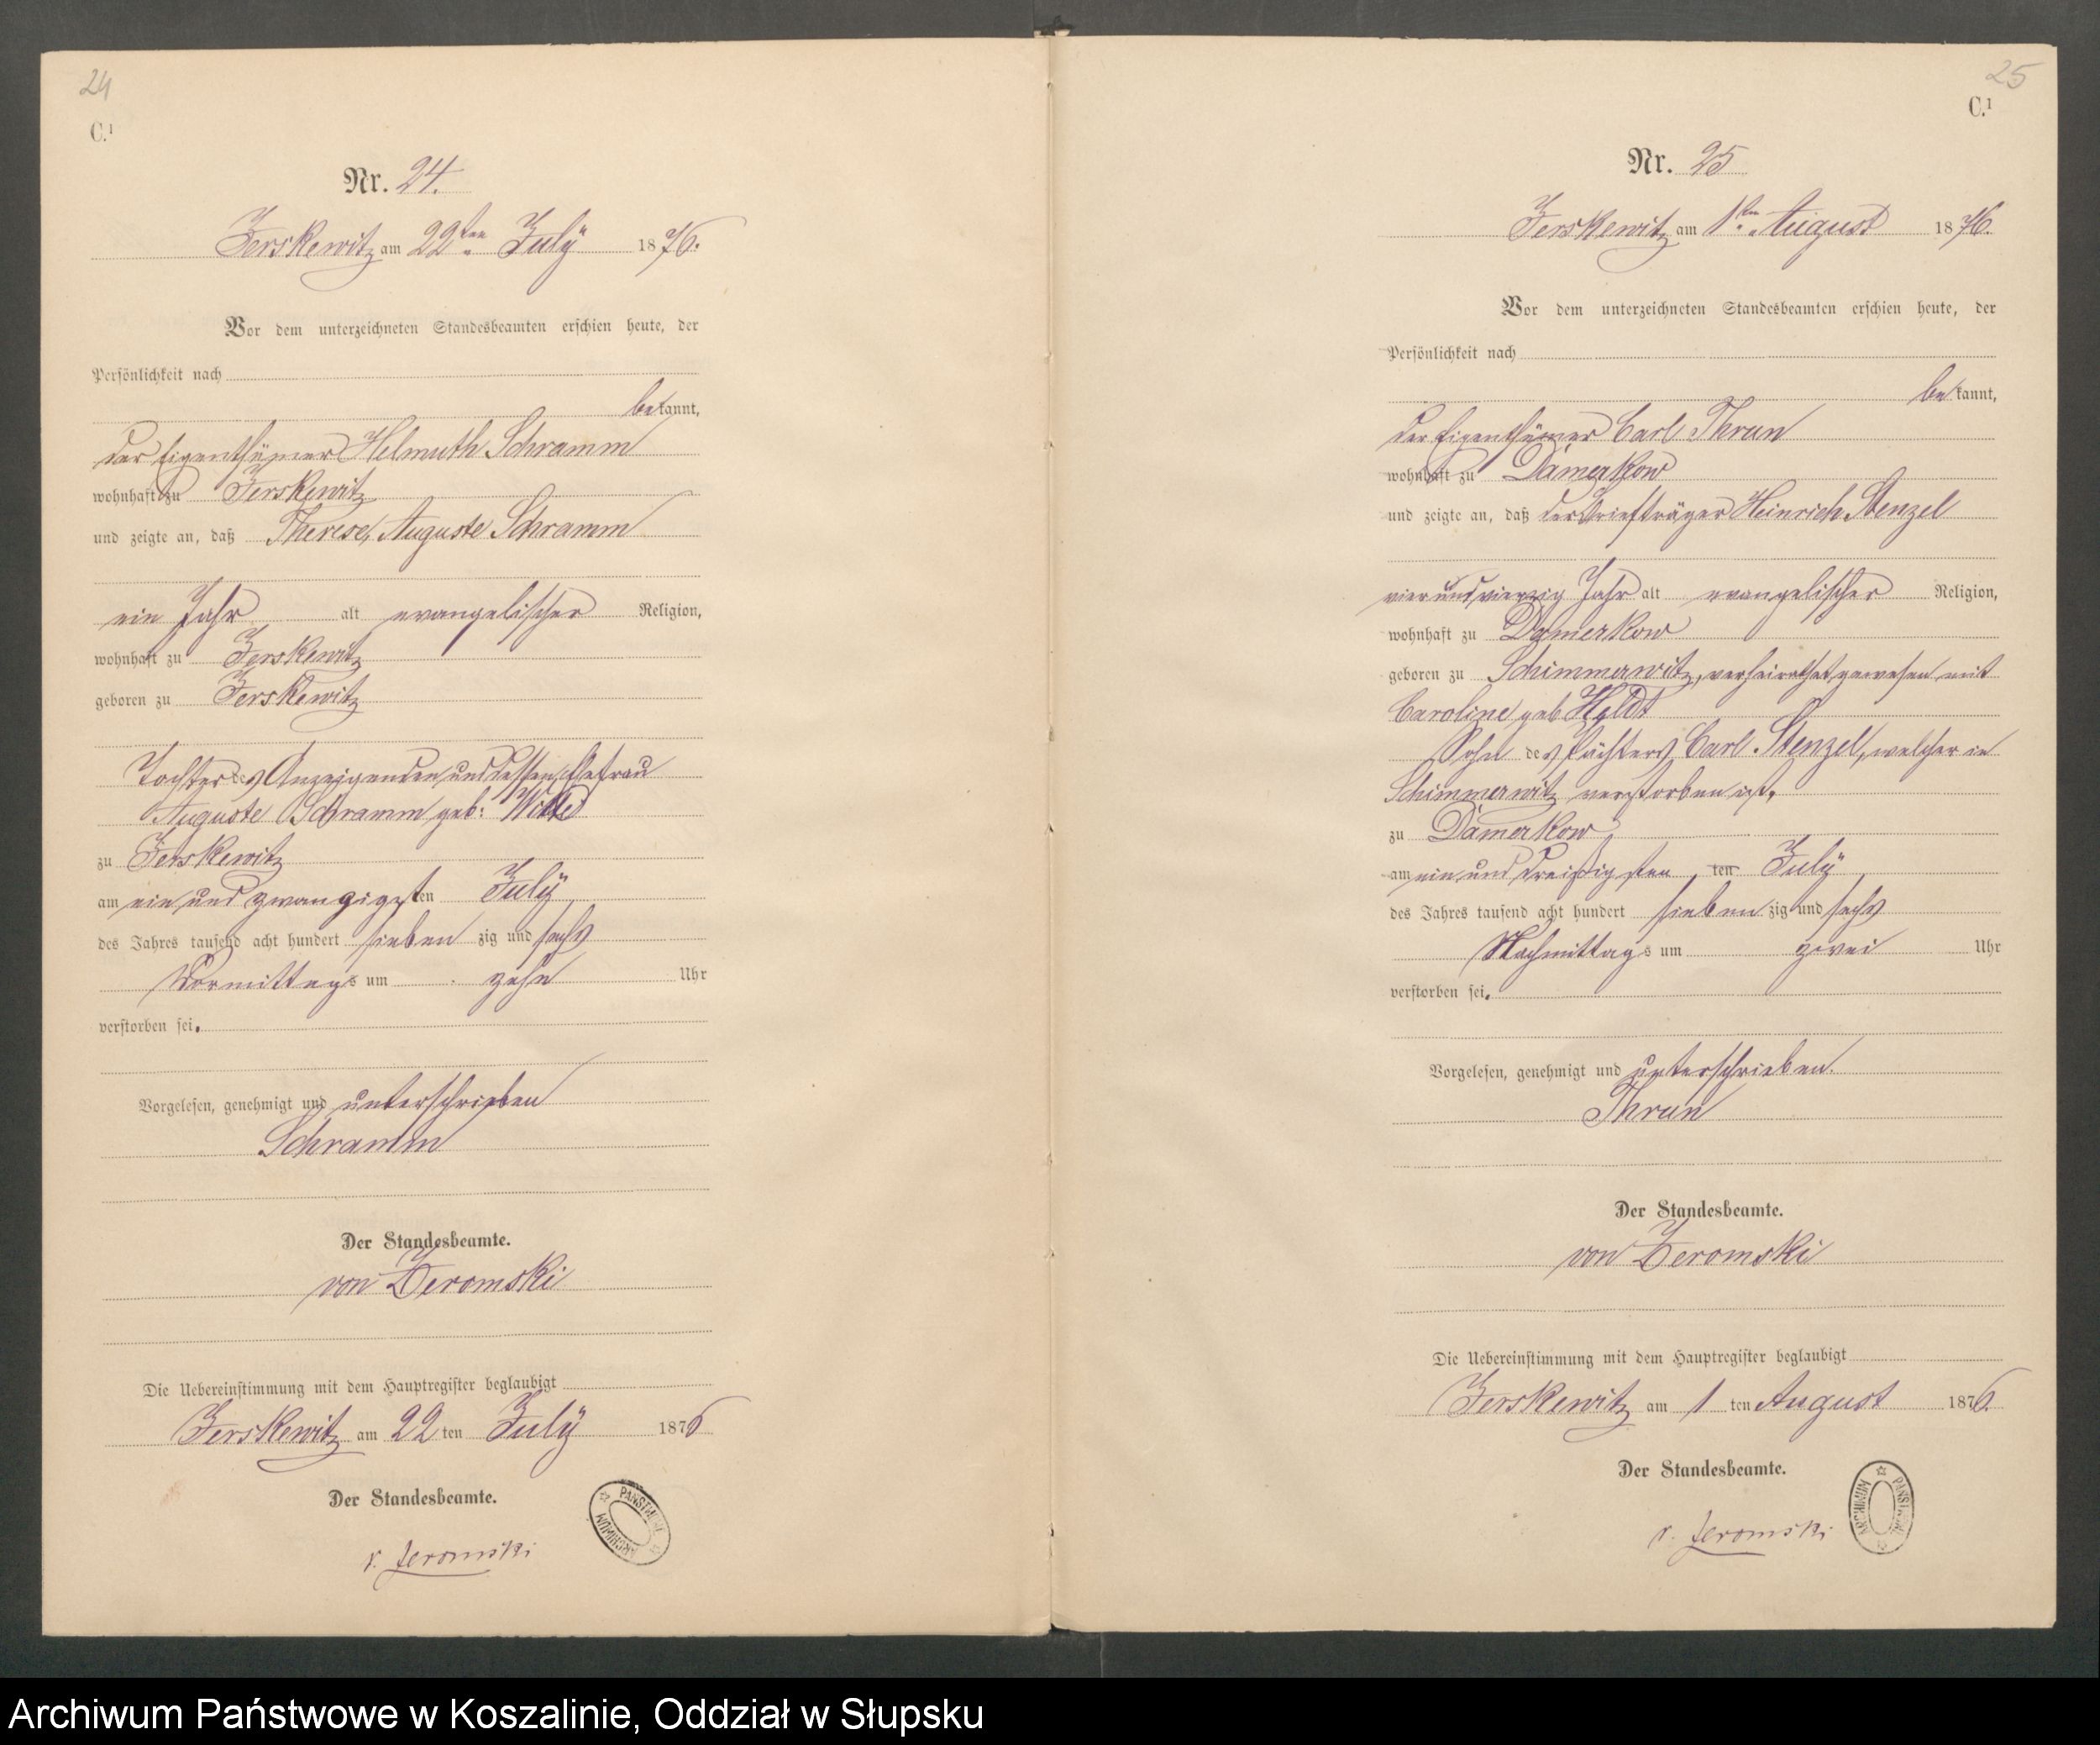 24
C.¹
Nr. 24.
Jerskewitz am 22ten July 1876.
Vor dem unterzeichneten Standesbeamten erschien heute, der
Persönlichkeit nach
bekannt,
der Eigenthümer Helmuth Schramm
wohnhaft zu Jerskewitz
und zeigte an, daß Therese, Auguste Schramm
ein Jahr alt evangelischer Religion,
wohnhaft zu Jerskewitz
geboren zu Jerskewitz
Tochter des Anzeigenden und dessen Ehefrau
Auguste Schramm geb:
zu Jerskewitz
am ein und zwanzigsten July
des Jahres tausend acht hundert siebenzig und sechs
Vormittags um zehn Uhr
verstorben sei.
Vorgelesen, genehmigt und unterschrieben
Schramm
Der Standesbeamte.
von Zeromski
Die Uebereinstimmung mit dem Hauptregister beglaubigt
Jerskewitz am 22ten July 1876
Der Standesbeamte.
v. Zeromski
ARCHIWUM PAŃSTWOWE
25
C.¹
Nr. 25
Jerskewitz am 1ten August 1876.
Vor dem unterzeichneten Standesbeamten erschien heute, der
Persönlichkeit nach
bekannt,
der Eigenthümer Carl Thrun
wohnhaft zu Damerkow
und zeigte an, daß der Briefträger Heinrich Stenzel
vier und vierzig Jahr alt evangelischer Religion,
wohnhaft zu Damerkow
geboren zu Schimmerwitz, verheirathet gewesen mit
Caroline geb
Sohn des Pächters Carl Stenzel, welcher in
Schimmerwitz verstorben ist,
zu Damerkow
am ein und dreißigsten ten July
des Jahres tausend acht hundert siebenzig und sechs
Nachmittags um zwei Uhr
verstorben sei.
Vorgelesen, genehmigt und unterschrieben.
Thrun
Der Standesbeamte.
von Zeromski
Die Uebereinstimmung mit dem Hauptregister beglaubigt
Jerskewitz am 1ten August 1876.
Der Standesbeamte.
v. Zeromski
ARCHIWUM PAŃSTWOWE
Archiwum Państwowe w Koszalinie, Oddział w Słupsku